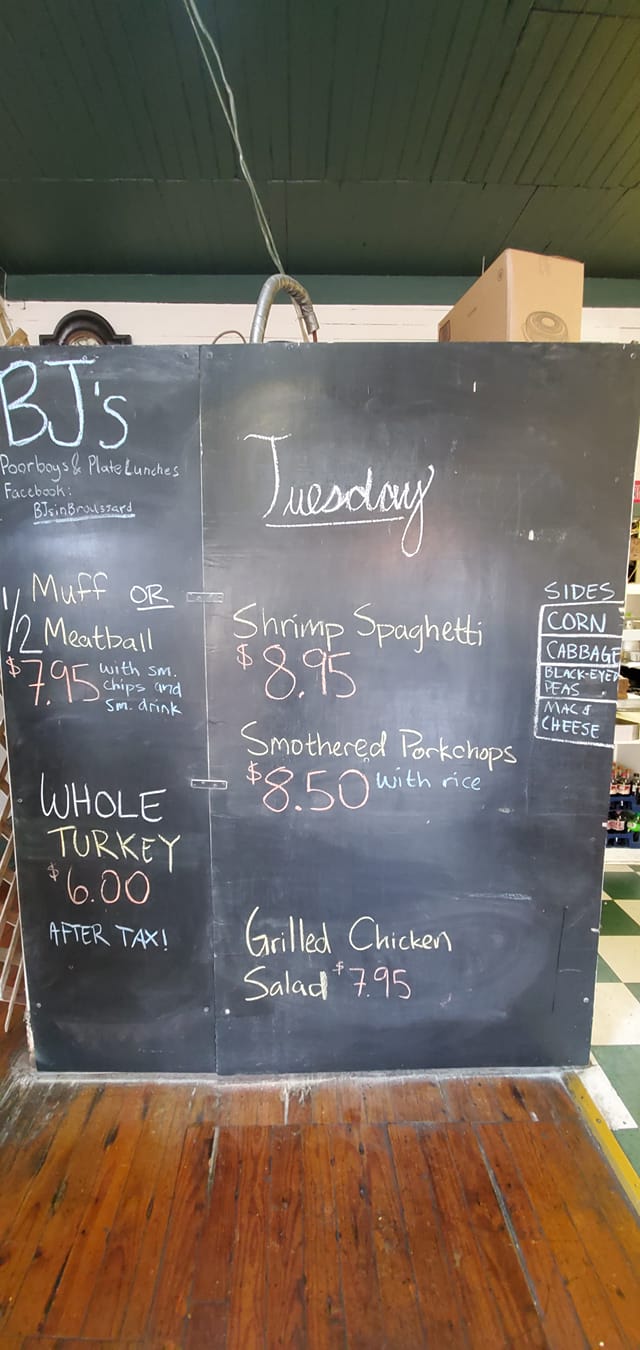 BJ's
Poorboys & Plate Lunches
Facebook:
BJsinBroussard
1/2 Muff OR
Meatball
$7.95 with sm.
chips and
sm. drink
WHOLE
TURKEY
$6.00
AFTER TAX!
Tuesday
Shrimp Spaghetti
$8.95
Smothered Porkchops
$8.50 with rice
Grilled Chicken
Salad $7.95
SIDES
CORN
CABBAGE
BLACK-EYED
PEAS
MAC &
CHEESE